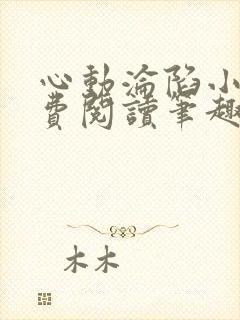 心動淪陷小
費閱讀筆趣
木木